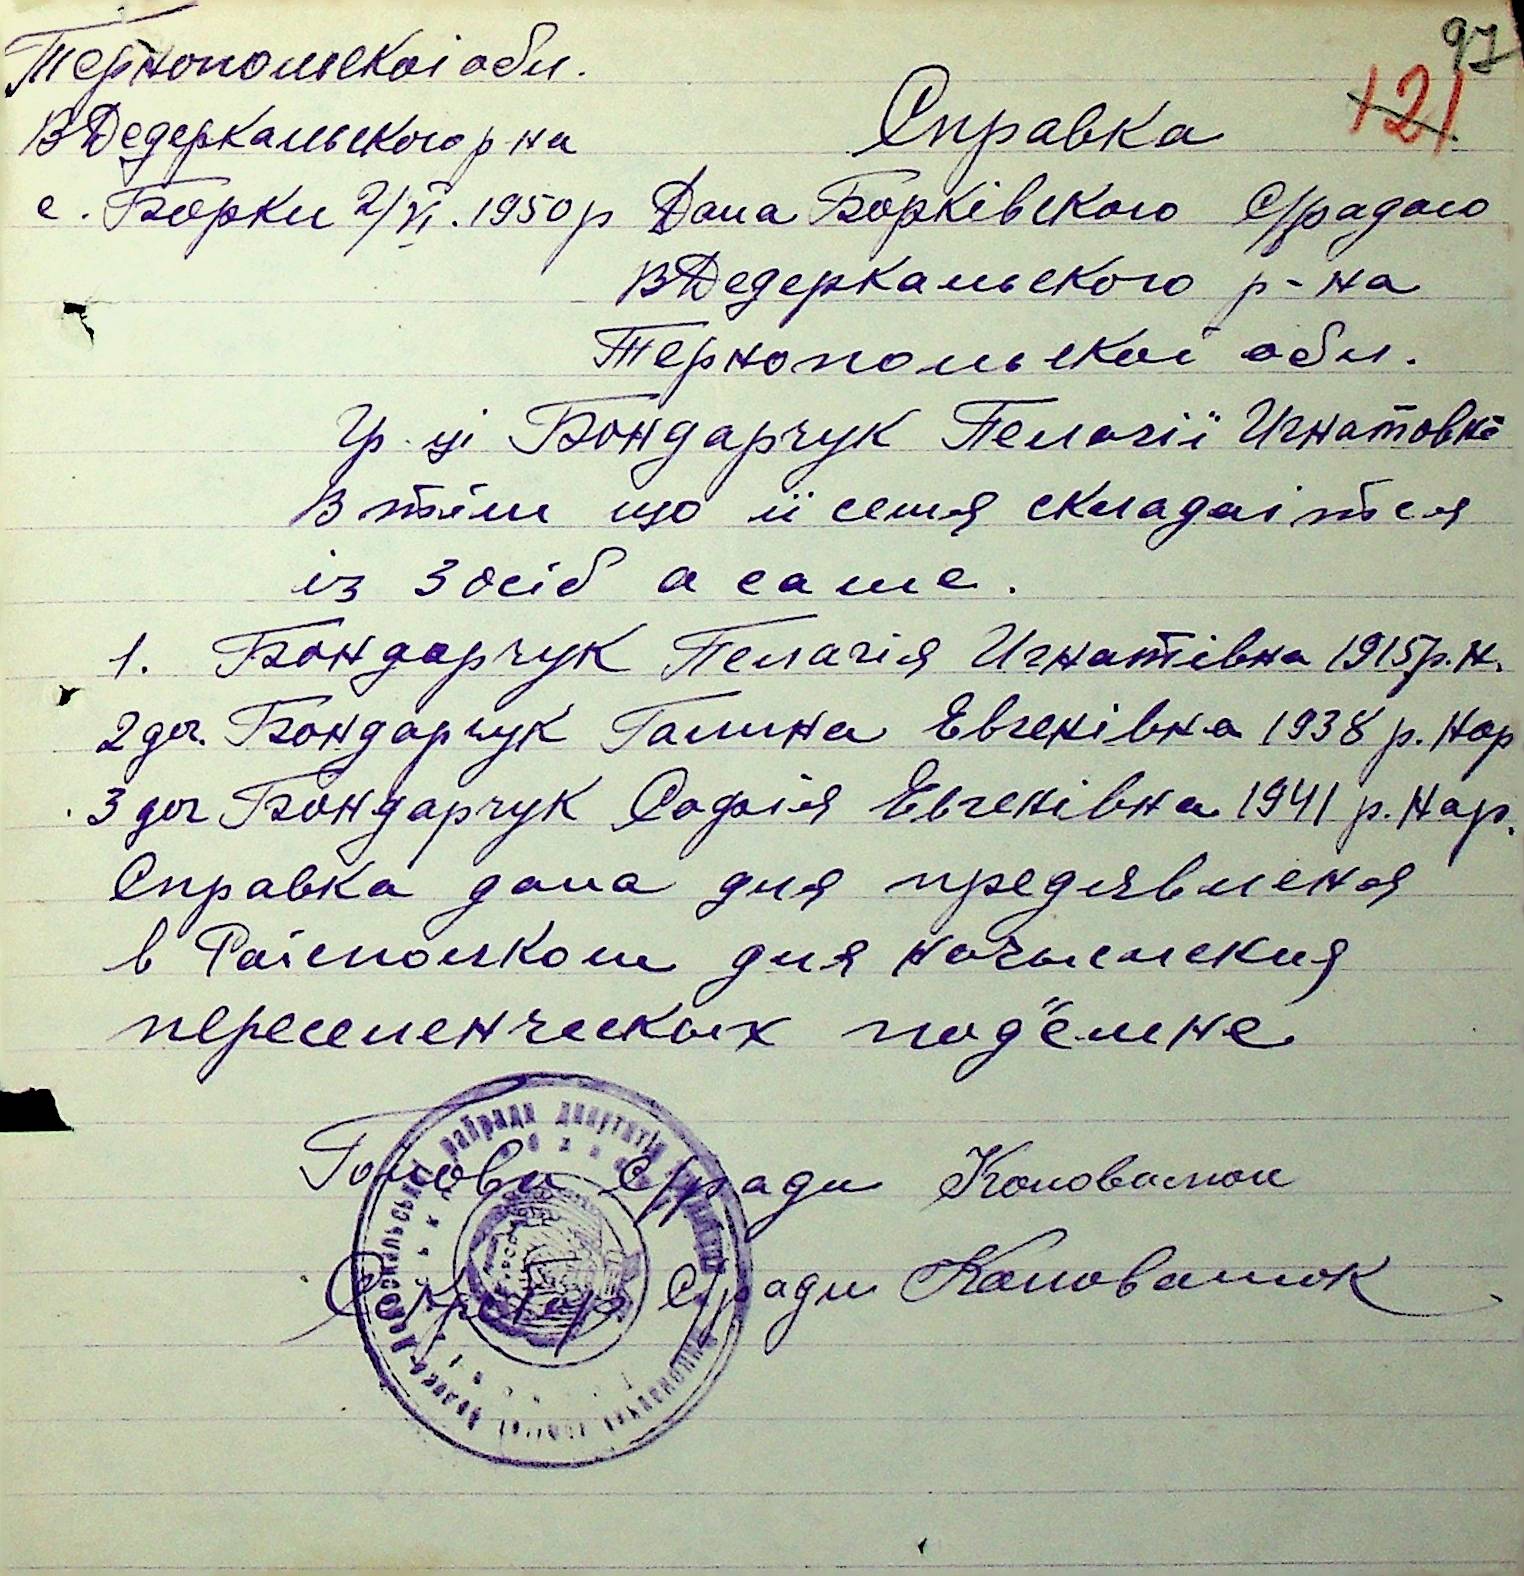 97
121
Тернопольскої обл.
ВДедеркальского р на
с. Борки 2/VI. 1950 р
Справка
Дана Борківского С/радою
ВДедеркальского р-на
Тернопольскої обл.
Гр. ці Бондарчук Пелагії Игнатовні
В тім що ії семя складаіться
із 3 осіб а саме.
1. Бондарчук Пелагія Игнатівна 1915 р.н.
2 доч. Бондарчук Галина Евгенівна 1938 р. нар
3 доч Бондарчук Софія Евгенівна 1941 р. нар.
Справка дана для предявленя
в Райсполком для
переселенческых под'ёмне
Голова С/ради
Секретар С/ради Коновалюк